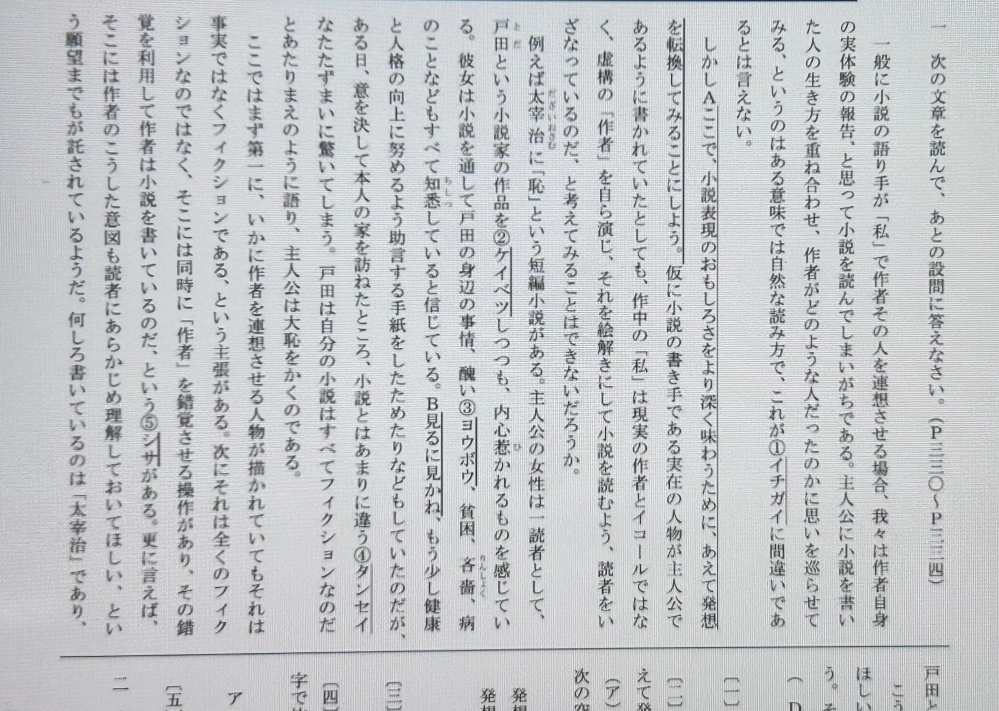 一　次の文章を読んで、あとの設問に答えなさい。（P三三〇～P三三四）
一般に小説の語り手が「私」で作者その人を連想させる場合、我々は作者自身
の実体験の報告、と思って小説を読んでしまいがちである。主人公に小説を書い
た人の生き方を重ね合わせ、作者がどのような人だったのかに思いを巡らせて
みる、というのはある意味では自然な読み方で、これが①イチガイに間違いであ
るとは言えない。
しかしAここで、小説表現のおもしろさをより深く味わうために、あえて発想
を転換してみることにしよう。仮に小説の書き手である実在の人物が主人公で
あるように書かれていたとしても、作中の「私」は現実の作者とイコールではな
く、虚構の「作者」を自ら演じ、それを絵解きにして小説を読むよう、読者をい
ざなっているのだ、と考えてみることはできないだろうか。
例えば太宰治に「恥」という短編小説がある。主人公の女性は一読者として、
だざいおさむ
戸田という小説家の作品を②ケイベツしつつも、内心惹かれるものを感じてい
とだ
ひ
る。彼女は小説を通して戸田の身辺の事情、醜い③ヨウボウ、貧困、吝嗇、病
りんしょく
のことなどもすべて知悉していると信じている。B見るに見かね、もう少し健康
ちしつ
と人格の向上に努めるよう助言する手紙をしたためたりなどもしていたのだが、
ある日、意を決して本人の家を訪ねたところ、小説とはあまりに違う④タンセイ
なたたずまいに驚いてしまう。戸田は自分の小説はすべてフィクションなのだ
とあたりまえのように語り、主人公は大恥をかくのである。
ここではまず第一に、いかに作者を連想させる人物が描かれていてもそれは
事実ではなくフィクションである、という主張がある。次にそれは全くのフィク
ションなのではなく、そこには同時に「作者」を錯覚させる操作があり、その錯
覚を利用して作者は小説を書いているのだ、という⑤シサがある。更に言えば、
そこには作者のこうした意図も読者にあらかじめ理解しておいてほしい、とい
う願望までもが託されているようだ。何しろ書いているのは「太宰治」であり、
戸田と
こう
ほしい
う。そ
（D
〔一〕
〔二〕
えて発
（ア）
次の空
発想
発想
〔三〕
〔四〕
字で
ア
〔五〕
二